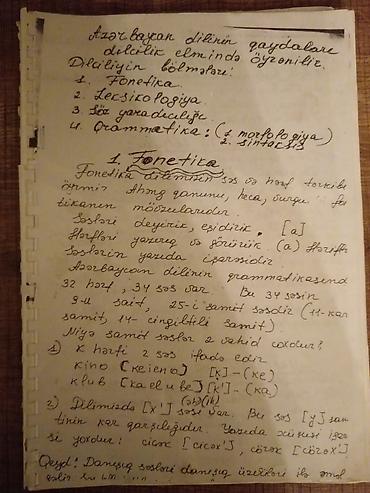 Azərbaycan dilinin qaydaları
dilçilik elmində öyrənilir.
Dilçiliyin bölmələri:
1. Fonetika
2. Leksikologiya
3. Söz yaradıcılığı
4. Qrammatika: (1. morfologiya)
2. sintaksis
1. Fonetika
Fonetika dilimizin səs və hərf tərkibi
öyrənir Ahəng qanunu, heca, vurğu fo
tikanın mövzularıdır.
Səsləri deyirik, eşidirik. [a]
Hərfləri yazırıq və görürük (a) Hərflər
Səslərin yazıda işarəsidir
Azərbaycan dilinin qrammatikasında
32 hərf, 34 səs var. Bu 34 səsin
9-u sait, 25-i samit səsdir (11-kar
samit, 14-cingiltili samit)
Niyə samit səslər 2 vahid çoxdur?
1) K hərfi 2 səs ifadə edir
kino [keieno] [k]-(ke)
klub [kaelube] [k']-(ka)
2) Dilimizdə [x'] səsi var. Bu səs [y] sam
tinin kar qarşılığıdır. Yazıda xüsusi işarə
si yoxdur: çiçək [çiçəx'], çörək [çörəx']
Qeyd: Danışıq səsləri danışıq üzvləri ilə əmələ
gəlir